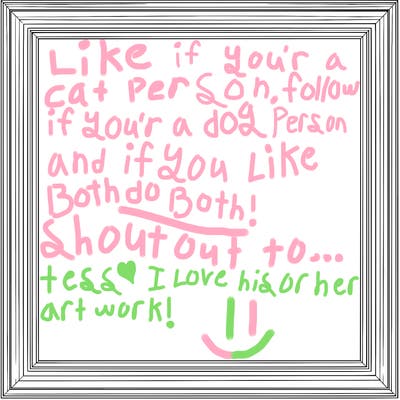 Like if you'r a
cat person, follow
if you'r a dog Person
and if you Like
Both do Both!
Shout out to...
tess I Love his or her
art work!